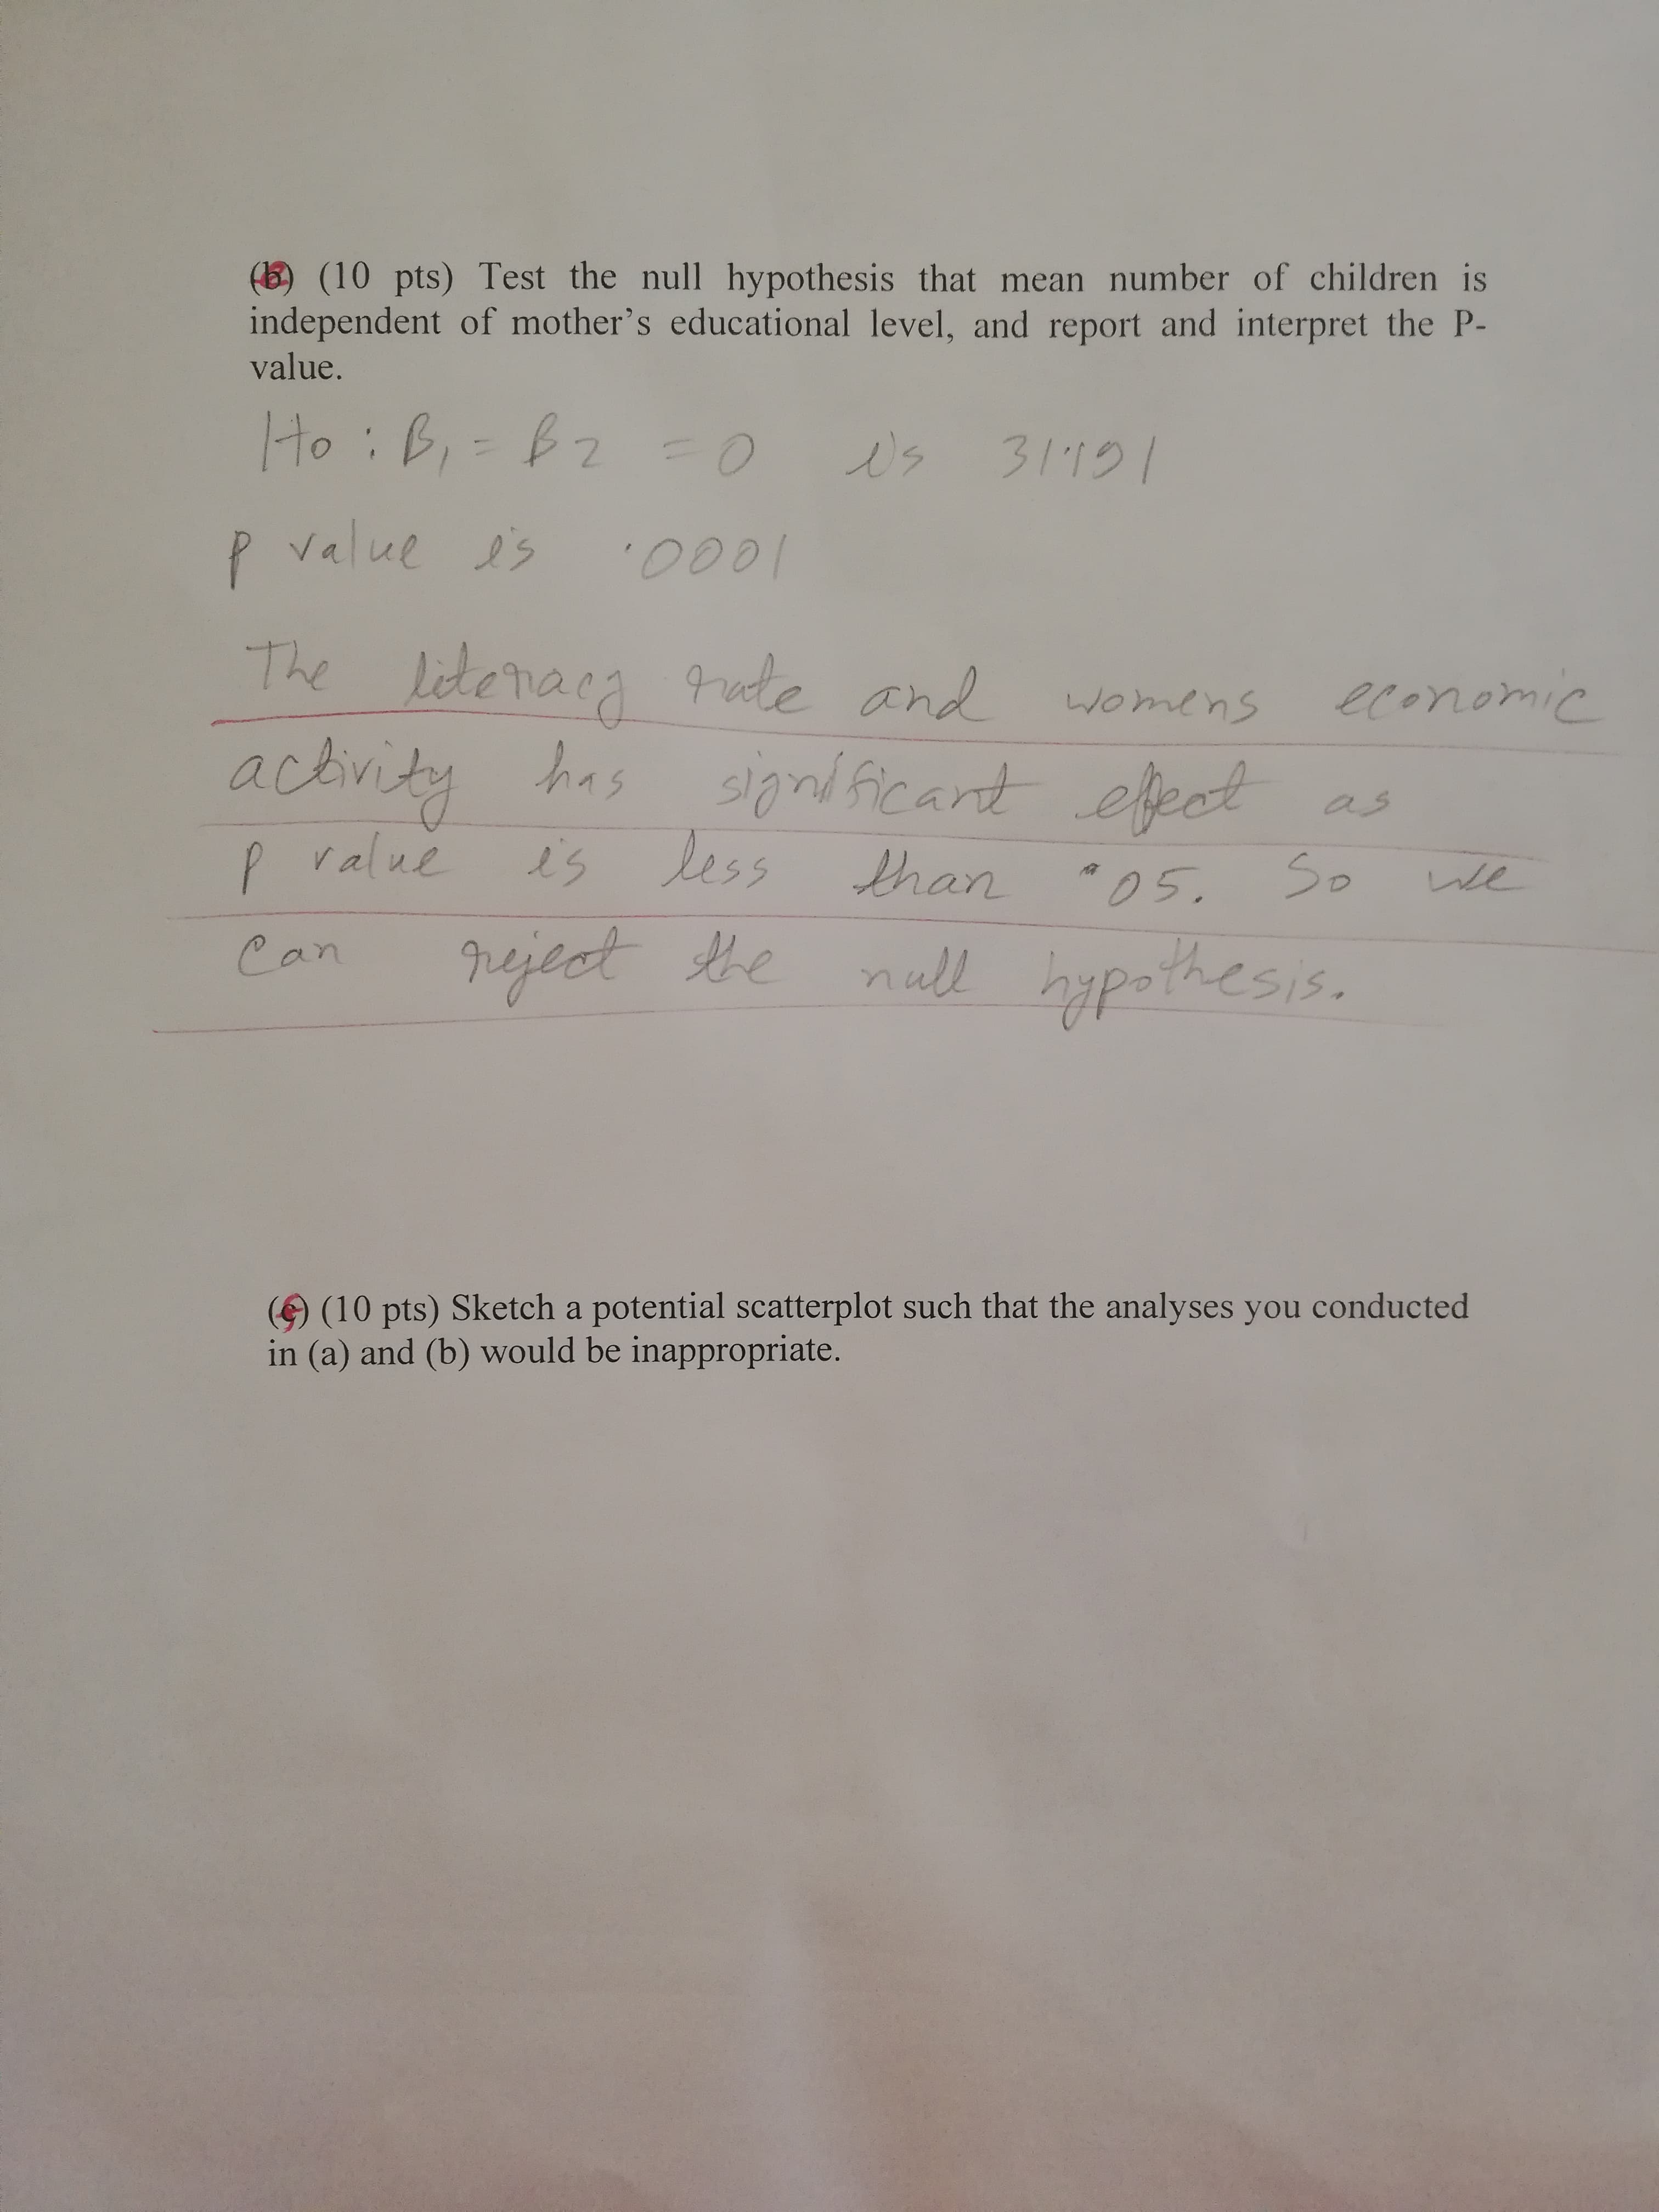 (b) (10 pts) Test the null hypothesis that mean number of children is
independent of mother's educational level, and report and interpret the P-
value.
Ho : B1 = B2 = 0 is 31.191
p value is .0001
The literacy rate and womens economic
activity has significant effect as
p value is less than .05. So we
can reject the null hypothesis.
(c) (10 pts) Sketch a potential scatterplot such that the analyses you conducted
in (a) and (b) would be inappropriate.